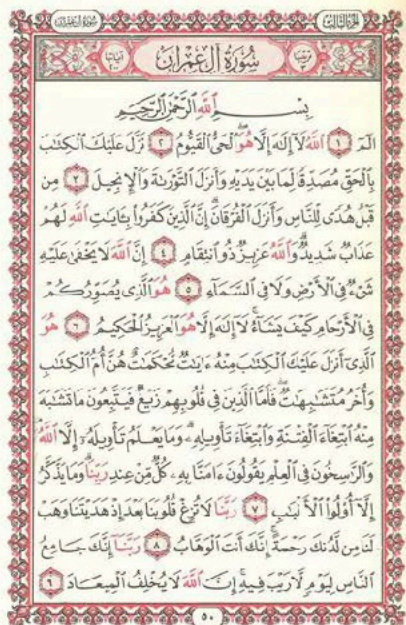 سورة آل عمران
الجزء الثالث
ترتيبها ٣
سُورَةُ آلِ عِمْرَانَ
آياتها ٢٠٠
بِسْمِ اللَّهِ الرَّحْمَٰنِ الرَّحِيمِ
الٓمٓ ١ اللَّهُ لَآ إِلَٰهَ إِلَّا هُوَ الْحَيُّ الْقَيُّومُ ٢ نَزَّلَ عَلَيْكَ الْكِتَٰبَ
بِالْحَقِّ مُصَدِّقًا لِّمَا بَيْنَ يَدَيْهِ وَأَنزَلَ التَّوْرَىٰةَ وَالْإِنجِيلَ ٣ مِن
قَبْلُ هُدًى لِّلنَّاسِ وَأَنزَلَ الْفُرْقَانَ إِنَّ الَّذِينَ كَفَرُوا بِـَٔايَٰتِ اللَّهِ لَهُمْ
عَذَابٌ شَدِيدٌ وَاللَّهُ عَزِيزٌ ذُو انتِقَامٍ ٤ إِنَّ اللَّهَ لَا يَخْفَىٰ عَلَيْهِ
شَىْءٌ فِى الْأَرْضِ وَلَا فِى السَّمَآءِ ٥ هُوَ الَّذِى يُصَوِّرُكُمْ
فِى الْأَرْحَامِ كَيْفَ يَشَآءُ لَآ إِلَٰهَ إِلَّا هُوَ الْعَزِيزُ الْحَكِيمُ ٦ هُوَ
الَّذِىٓ أَنزَلَ عَلَيْكَ الْكِتَٰبَ مِنْهُ ءَايَٰتٌ مُّحْكَمَٰتٌ هُنَّ أُمُّ الْكِتَٰبِ
وَأُخَرُ مُتَشَٰبِهَٰتٌ فَأَمَّا الَّذِينَ فِى قُلُوبِهِمْ زَيْغٌ فَيَتَّبِعُونَ مَا تَشَٰبَهَ
مِنْهُ ابْتِغَآءَ الْفِتْنَةِ وَابْتِغَآءَ تَأْوِيلِهِ وَمَا يَعْلَمُ تَأْوِيلَهُۥٓ إِلَّا اللَّهُ
وَالرَّٰسِخُونَ فِى الْعِلْمِ يَقُولُونَ ءَامَنَّا بِهِۦ كُلٌّ مِّنْ عِندِ رَبِّنَا وَمَا يَذَّكَّرُ
إِلَّآ أُولُوا الْأَلْبَٰبِ ٧ رَبَّنَا لَا تُزِغْ قُلُوبَنَا بَعْدَ إِذْ هَدَيْتَنَا وَهَبْ
لَنَا مِن لَّدُنكَ رَحْمَةً إِنَّكَ أَنتَ الْوَهَّابُ ٨ رَبَّنَآ إِنَّكَ جَامِعُ
النَّاسِ لِيَوْمٍ لَّا رَيْبَ فِيهِ إِنَّ اللَّهَ لَا يُخْلِفُ الْمِيعَادَ ٩
٥٠